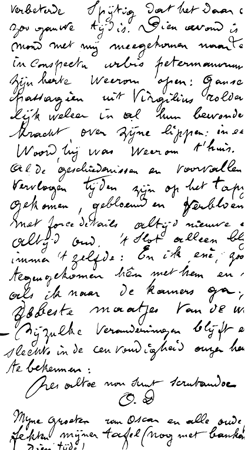 verbeterde Spijtig dat het daar
zoo gauwe tijd is. Dien avond is
mond met mij meegekomen naar
in conspectu urbis petermannorum
zijn herte Weerom open: Ganse
passagien uit Virgilius rolde
lijk weleer in al hun bewonde
kracht over zijne lippen: in ee
Woord, hij was Weerom t'huis.
Al de geschiedenissen en voorvallen
vervlogen tijden zijn op het tap
gekomen, gebloemd en
met force details altijd nieuwe
altijd oud. 't Slot alleen bl
imma 't zelfde: En ik ene, zoo
tegengekomen hem met hem en
als ik naar de kamers ga.
beste maatjes van de w
Bij zulke veranderingen blijft e
slechts in de eenvoudigheid onzer her
te bekennen:
Vies altae non sunt scrutandae
O. D
Mijne groeten van Oscar en alle oude
zekten mijner tafel (nog met banken